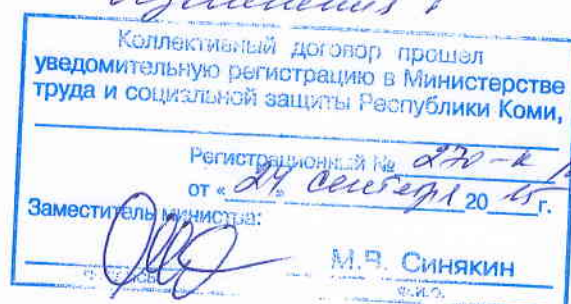 Изменения в
Коллективный договор прошел
уведомительную регистрацию в Министерстве
труда и социальной защиты Республики Коми,
Регистрационный № 270-к
от « 24 » сентября 20 15 г.
Заместитель министра:
М.В. Синякин
подпись Ф.И.О.